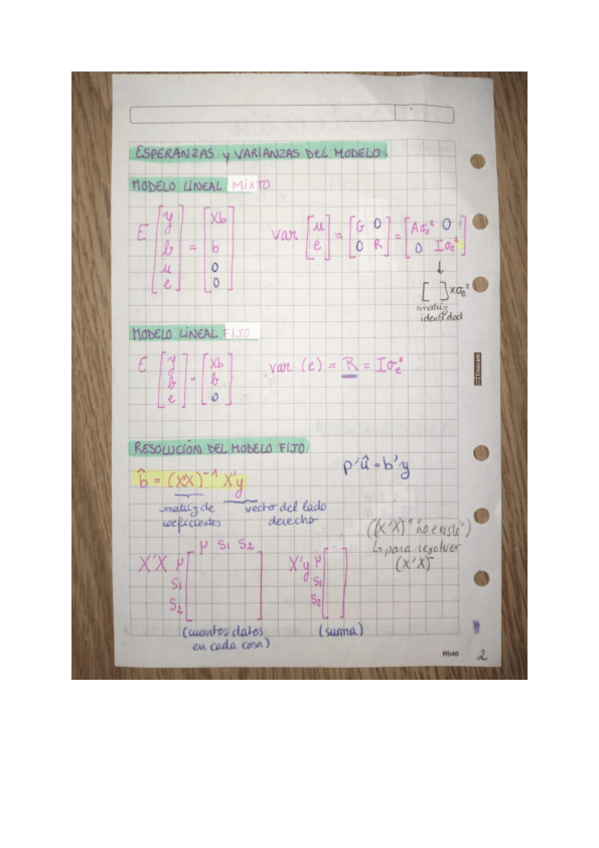 ESPERANZAS y VARIANZAS DEL MODELO
MODELO LINEAL MIXTO
E [y b u e] = [Xb b 0 0]
var [u e] = [G 0 0 R] = [Aσu² 0 0 Iσe²]
↓
[ ] xσe²
matriz
identidad
MODELO LINEAL FIJO
E [y b e] = [Xb b 0]
var (e) = R = Iσe²
RESOLUCIÓN DEL MODELO FIJO
b̂ = (X'X)⁻¹ X'y
p'û = b'y
matriz de
coeficientes
vector del lado
derecho
((X'X)⁻¹ "no existe")
↳ para resolver
(X'X)⁻
μ S1 S2
X'X μ
S1
S2
X'y μ
S1
S2
(cuantos datos
en cada cosa)
(suma)
R540
2